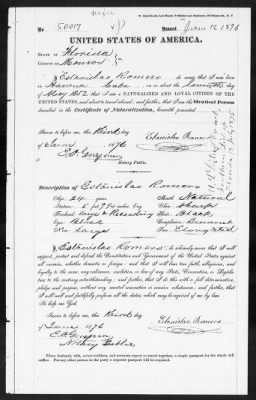 50017
Issued June 12 1876
UNITED STATES OF AMERICA.
STATE OF Florida
COUNTY OF Monroe
I Estanislao Romero do swear that I was born
in Havana Cuba on or about the
of May 1852 that I am a NATURALIZED AND LOYAL CITIZEN OF THE
UNITED STATES, and about to travel abroad; and further, that I am the Identical Person
described in the Certificate of Naturalization, herewith presented.
Sworn to before me, this Third day
of June 1876
Estanislao Romero
Notary Public.
Description of Estanislao Romero
Age: 24 years
Mouth: Natural
Stature: 5 feet inches Eng.
Chin: Sharp
Forehead: Large & Receding
Hair: Black
Eyes: Black
Complexion: Brunette
Nose: Large
Face: Elongated
I Estanislao Romero do solemnly swear that I
will support, protect and defend the Constitution and Government of the United States against
all enemies, whether domestic or foreign; and that I will bear true faith, allegiance, and
loyalty to the same, any ordinance, resolution, or law of any State, Convention, or Legislature
to the contrary notwithstanding; and further, that I do this with a full determination,
pledge and purpose, without any mental reservation or evasion whatsoever; and further, that
I will well and faithfully perform all the duties which may be required of me by law.
So help me God.
Sworn to before me, this Third day
of June 1876
Estanislao Romero
Notary Public
When husband, wife, minor children, and servants expect to travel together, a single passport for the whole will
suffice. For any other person in the party a separate passport will be required.